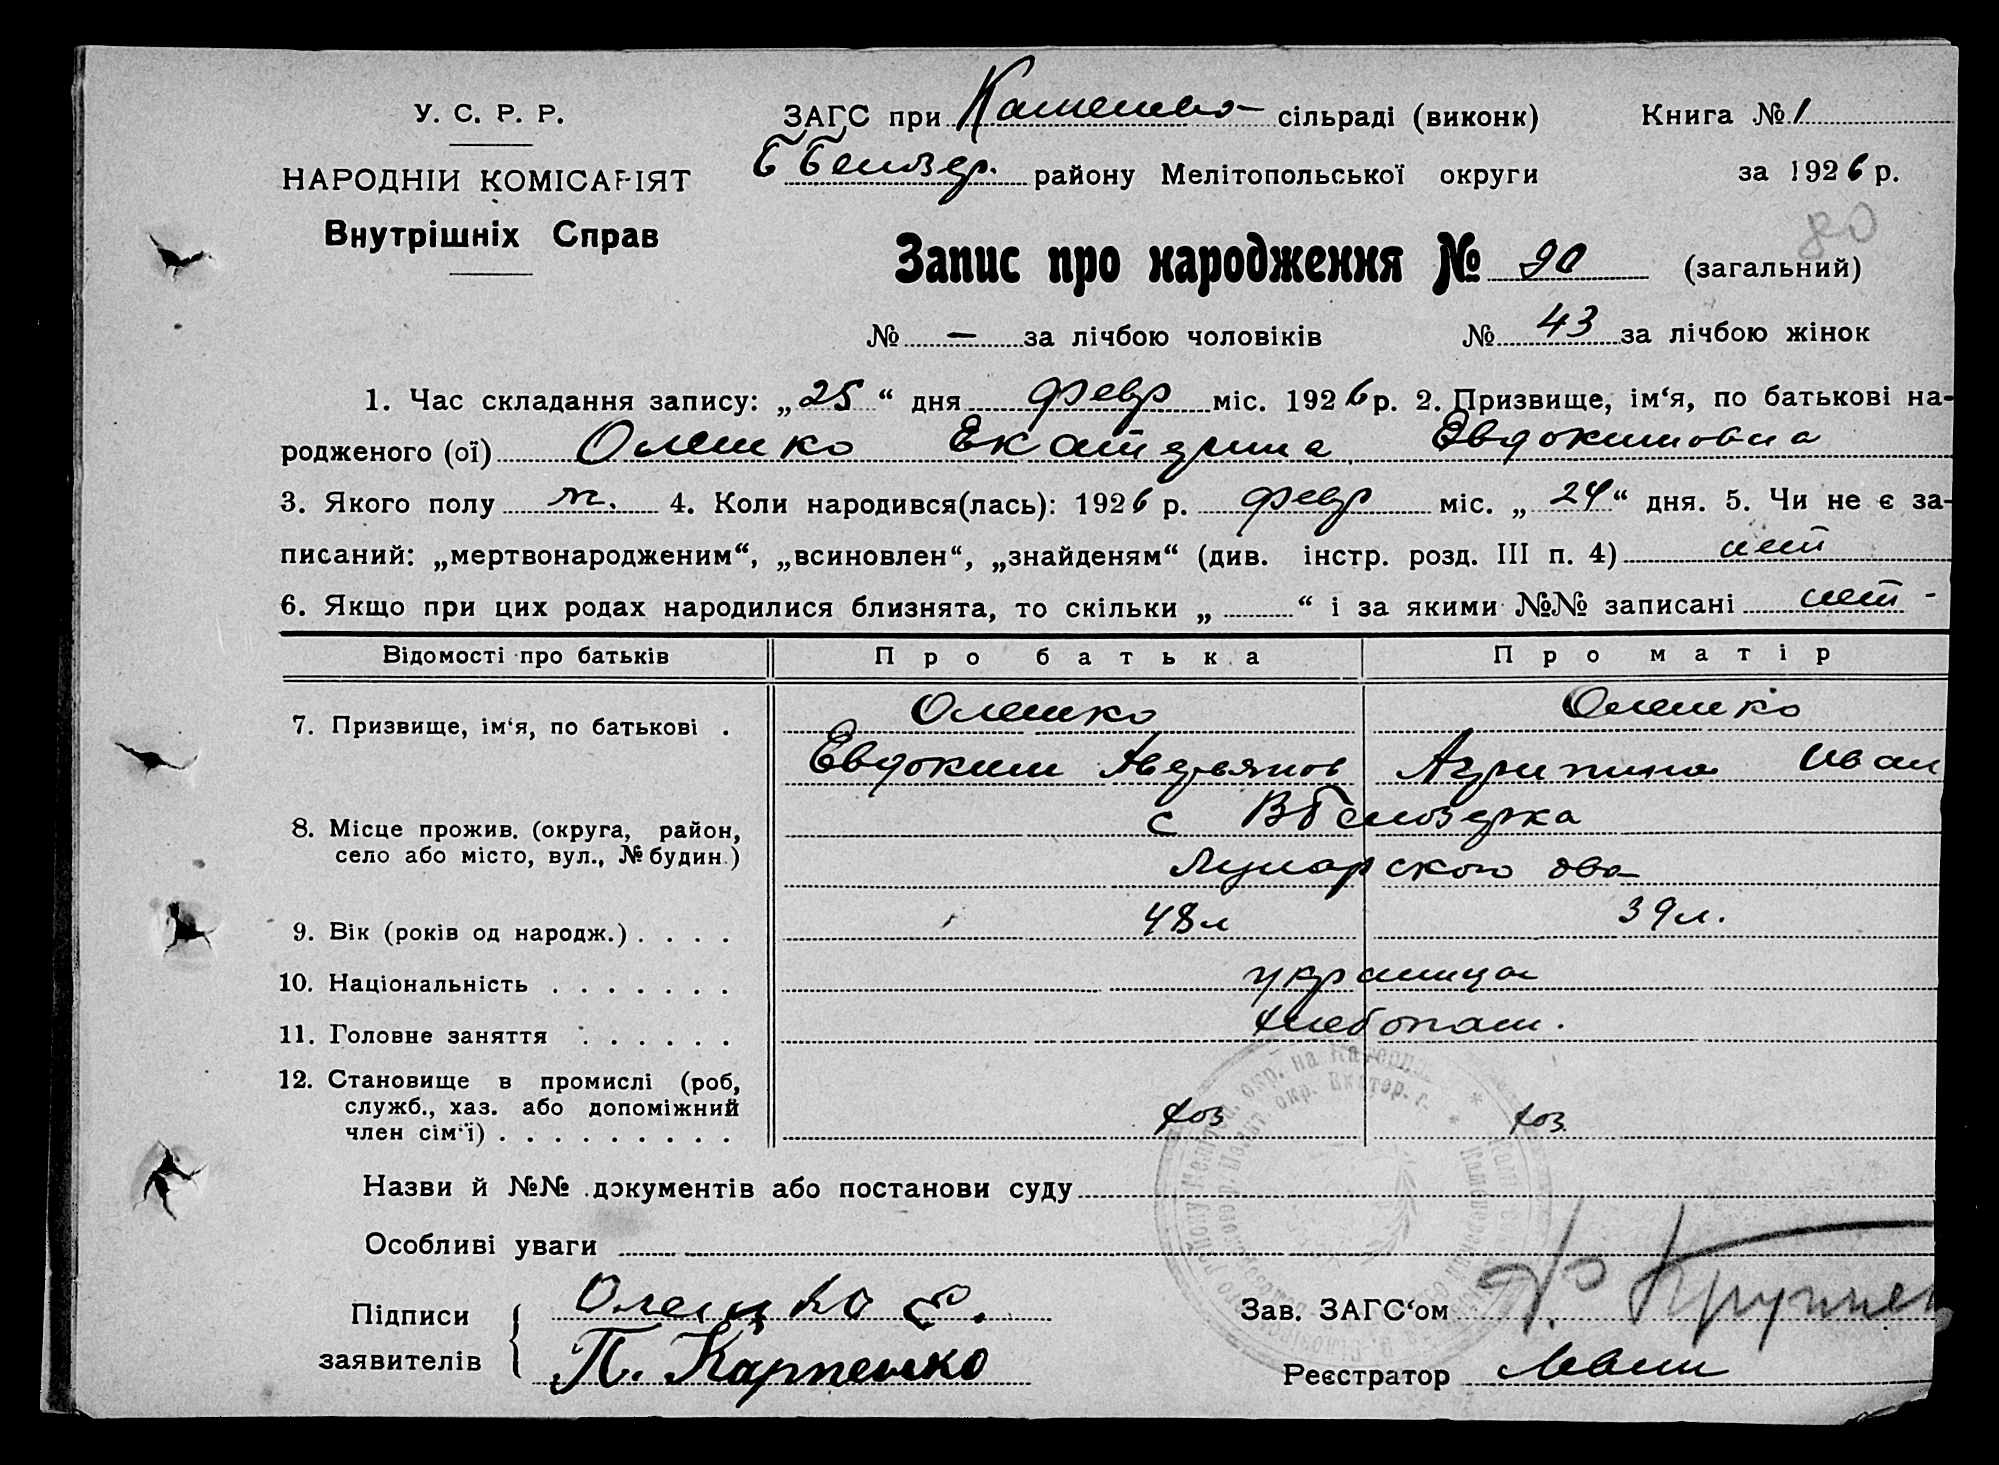 У. С. Р. Р.
НАРОДНІЙ КОМІСАРІЯТ
Внутрішніх Справ
ЗАГС при Каменево- сільраді (виконк)
Б Белозер. району Мелітопольської округи
Книга № 1
за 1926 р.
80
Запис про народження № 90 (загальний)
№ — за лічбою чоловіків № 43 за лічбою жінок
1. Час складання запису: „25“ дня февр міс. 1926 р. 2. Призвище, ім‘я, по батькові на-
родженого (ої) Олешко Екатерина Евдокимовна
3. Якого полу ж. 4. Коли народився(лась): 1926 р. февр міс. „24“ дня. 5. Чи не є за-
писаний: „мертвонародженим“, „всиновлен“, „знайденям“ (див. інстр. розд. III п. 4) нет
6. Якщо при цих родах народилися близнята, то скільки „ “ і за якими №№ записані нет -
Відомості про батьків Про батька Про матір
7. Призвище, ім‘я, по батькові . Олешко Олешко
Евдоким Авдеянов Агрипина Иван
8. Місце прожив. (округа, район, с ВБелозерка
село або місто, вул., № будин.) два
9. Вік (років од народж.) . . . . 48 л 39 л.
10. Національність . . . . . . . украинца
11. Головне заняття . . . . . . хлебопаш.
12. Становище в промислі (роб,
служб., хаз. або допоміжний
член сім‘ї) . . . . . . . . . хоз хоз.
Назви й №№ документів або постанови суду
Особливі уваги
Підписи Олешко Е.
заявителів П. Карпенко
Зав. ЗАГС‘ом
Реєстратор